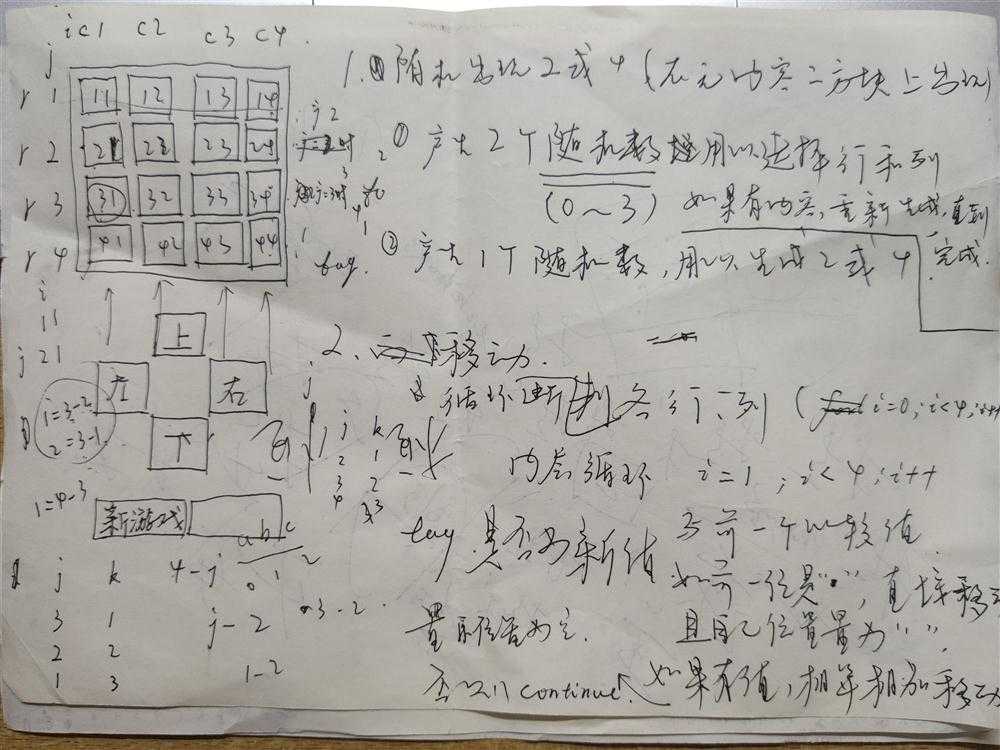 i c1 c2 c3 c4
j
r 1 11 12 13 14
r 2 21 22 23 24
r 3 31 32 33 34
r 4 41 42 43 44
tag.
i
11
j 21
上
左 右
下
i=3-2
2=3-1
1=4-3
新游戏
a b c
0 1 2
j k 4-j
3 1 j-2
2 2
1 3 1-2
3-2
j k
2 1
3 2
4 3
1. 随机出现2或4(在无内容之方块上出现)
① 产生2个随机数用以选择行和列
(0~3) 如果有内容,重新生成,直到完成.
② 产生1个随机数,用以生成2或4
2. 移动.
循环判各行、列 ( i=0;i<4;i++
内层循环 i=1;i<4;i++
tag 是否为新值 与前一个比较值
如前一位是" ",直接移动
置原位置为空. 且自己位置置为" ",
否则continue 如果有值,相等相加移动